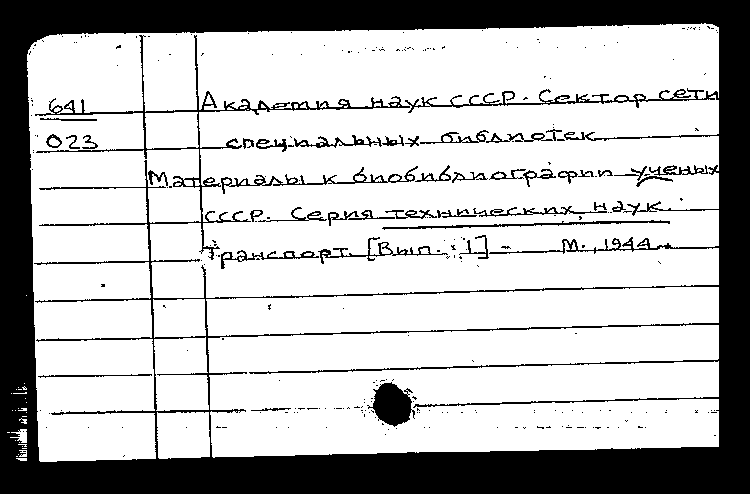 641 Академия наук СССР. Сектор сети
023 специальных библиотек
Материалы к биобиблиографии ученых
СССР. Серия технических наук.
Транспорт. [Вып. 1] - М., 1944